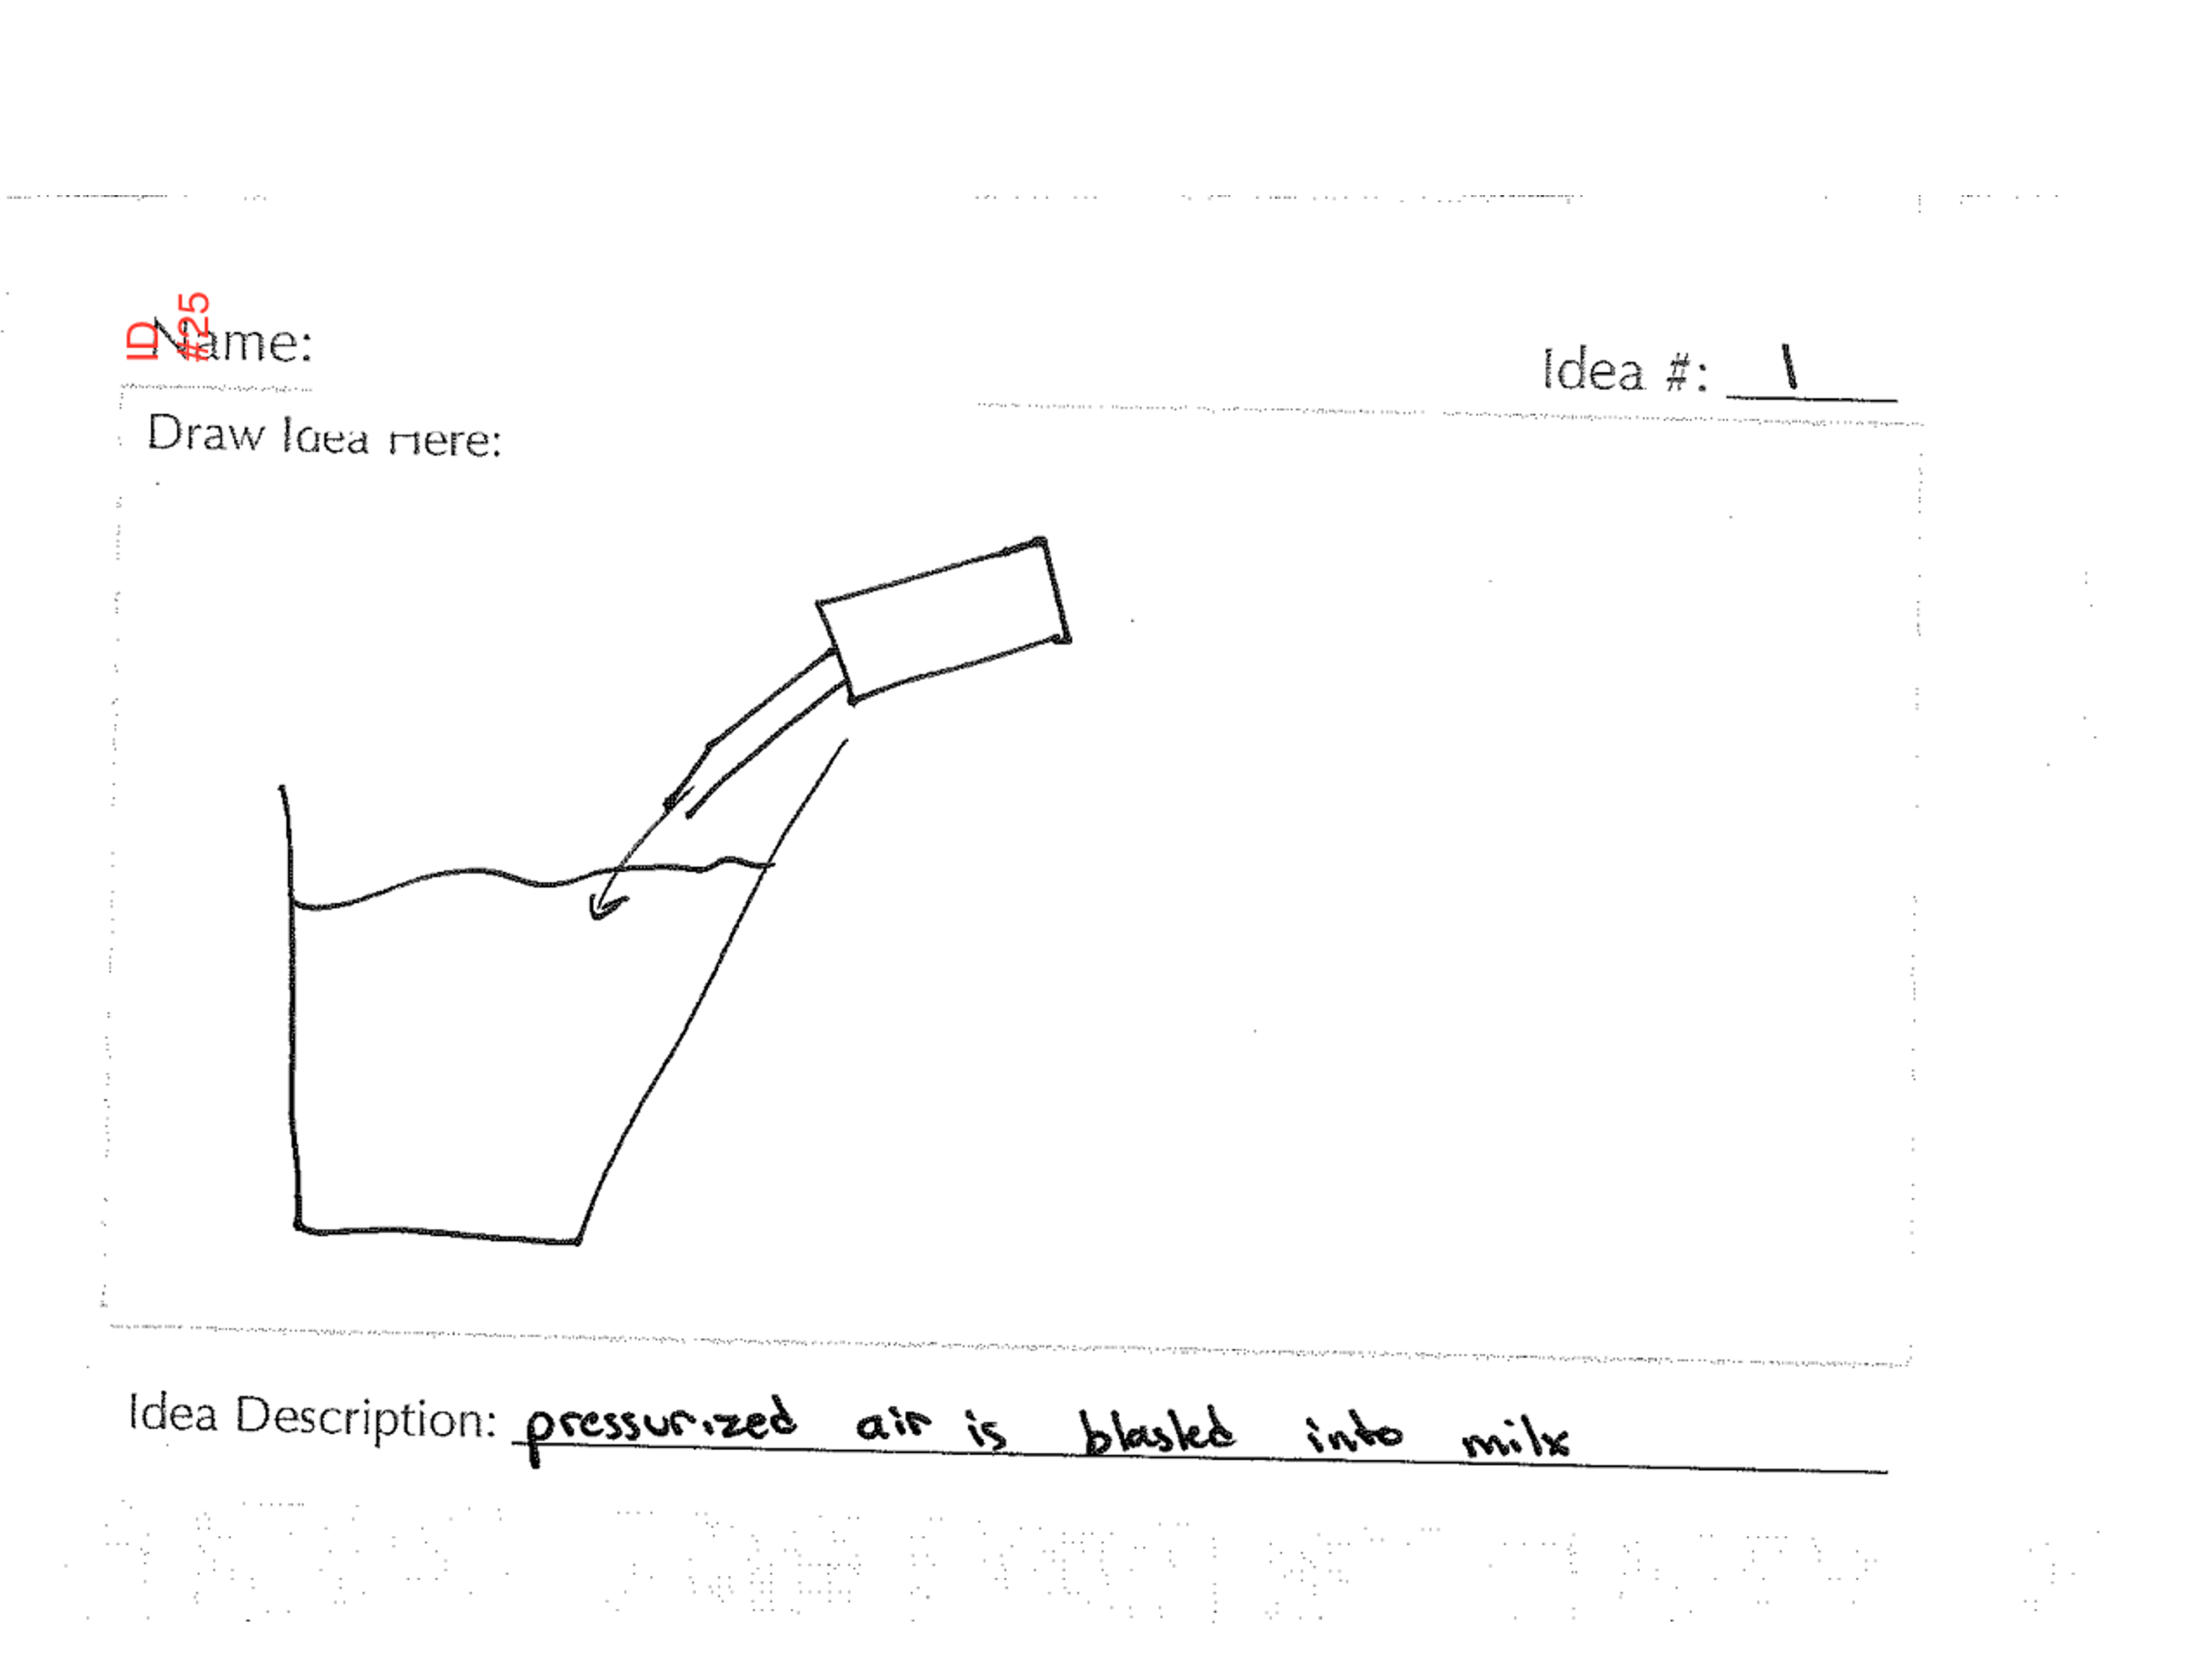 ID
#25
Name:
Idea #: 1
Draw Idea Here:
Idea Description: pressurized air is blasted into milk